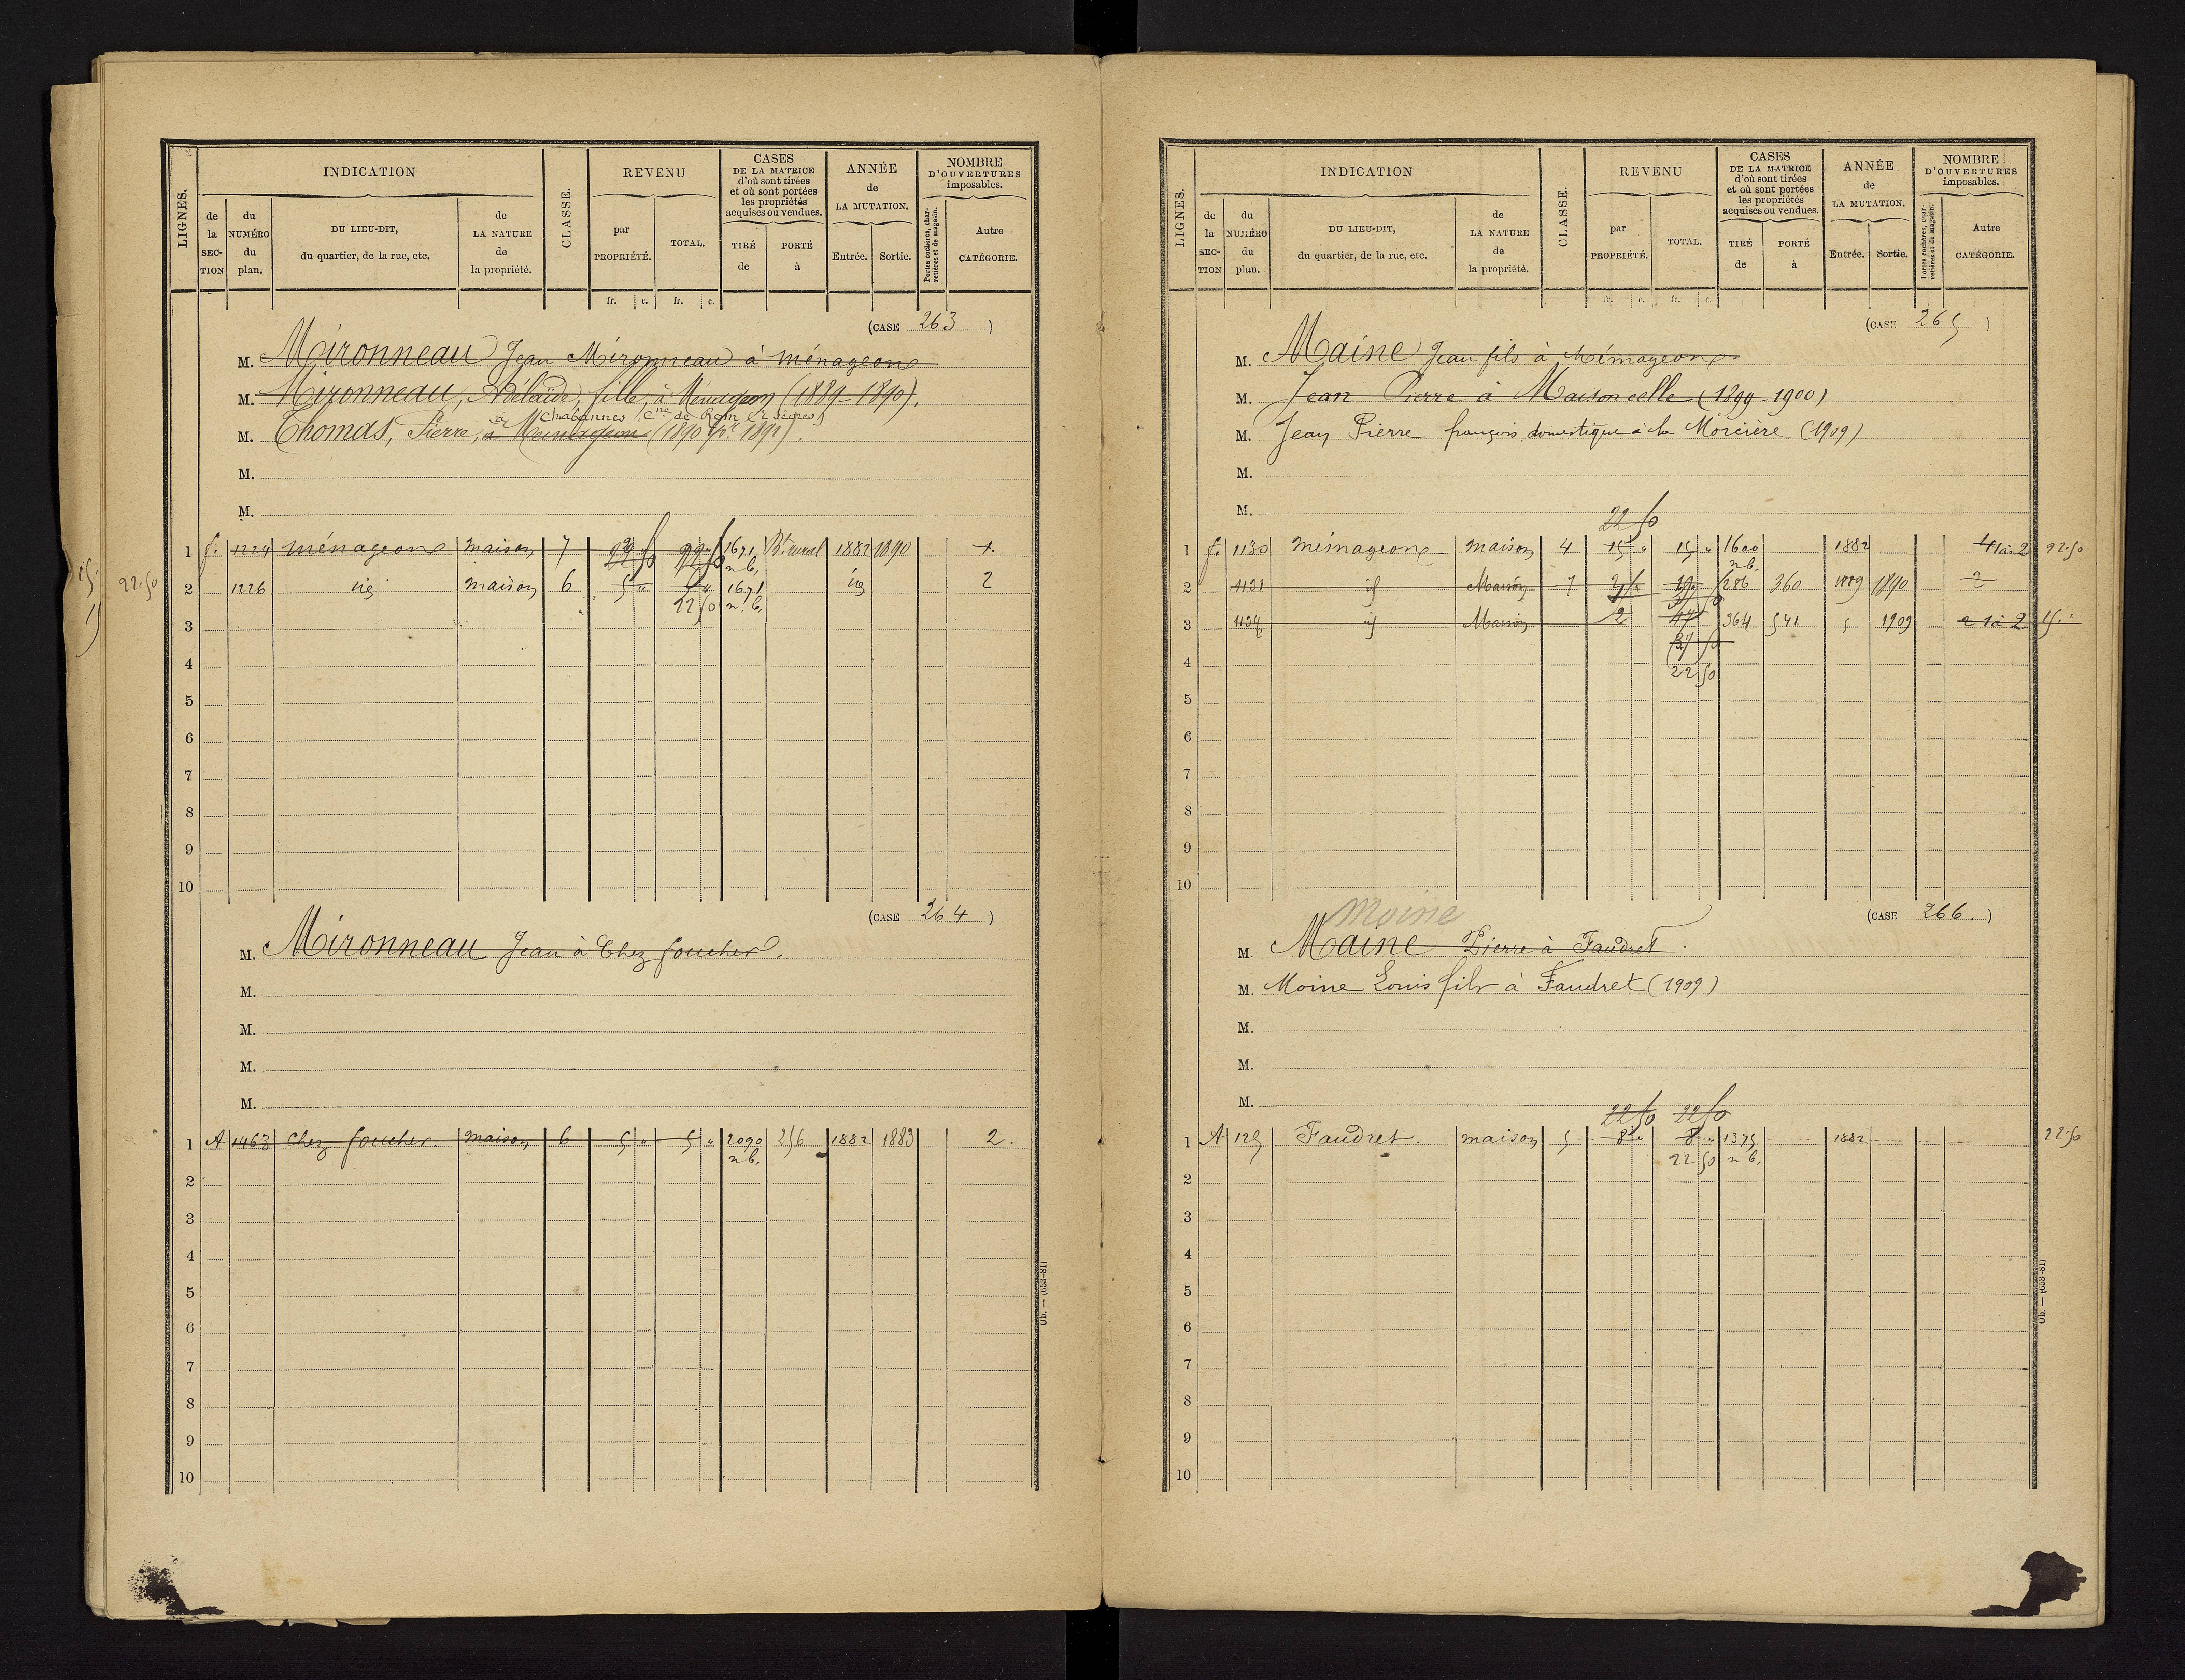 LIGNES. INDICATION CLASSE. REVENU CASES DE LA MATRICE d'où sont tirées et où sont portées les propriétés acquises ou vendues. ANNÉE de LA MUTATION. NOMBRE D'OUVERTURES imposables.
de la SECTION du NUMÉRO du plan. DU LIEU-DIT, du quartier, de la rue, etc. de LA NATURE de la propriété. par PROPRIÉTÉ. TOTAL. TIRÉ de PORTÉ à Entrée. Sortie. Portes cochères, charretières et de magasin. Autre CATÉGORIE.
fr. c. fr. c.
(CASE 263)
M. Mironneau Jean Mironneau à ménageons
M. Mironneau, Adélaïde, fille, à Ménageon (1889-1890).
à Chabannes Cne de Rom (2 Sèvres)
M. Thomas, Pierre,
M.
M.
1 f. 1224 ménageons maison 7 1671 n.b. Bt rural 1882 1890 1.
22.50 2 1226 id maison 6 5 " 22 50 1671 n.b. id 2
3
4
5
6
7
8
9
10
(CASE 264)
M. Mironneau Jean à Chez foucher.
M.
M.
M.
M.
1 A 1463 Chez foucher. maison 6 5 " 5 " 2090 n.b. 256 1882 1883 2.
2
3
4
5
6
7
8
9
10
Ob. — (653-81)
LIGNES. INDICATION CLASSE. REVENU CASES DE LA MATRICE d'où sont tirées et où sont portées les propriétés acquises ou vendues. ANNÉE de LA MUTATION. NOMBRE D'OUVERTURES imposables.
de la SECTION du NUMÉRO du plan. DU LIEU-DIT, du quartier, de la rue, etc. de LA NATURE de la propriété. par PROPRIÉTÉ. TOTAL. TIRÉ de PORTÉ à Entrée. Sortie. Portes cochères, charretières et de magasin. Autre CATÉGORIE.
fr. c. fr. c.
(CASE 265)
M. Maine Jean fils à Ménageons
M. Jean Pierre à Maisoncelle (1899-1900)
M. Jean Pierre françois domestique à la Morcière (1909)
M.
M.
22 50
1 f. 1130 ménageons. maison 4 15 " 15 " 1600 n.b. 1882 1 à 2 22.50
2 1131 id Maison 7 286 360 1889 1890 2
3 1134 id Maison 2 47 364 541 1909 1 à 2 15.
37 50
4 22 50
5
6
7
8
9
10
Moine
(CASE 266.)
M. Maine Pierre à Faudret.
M. Moine Louis fils à Faudret (1909)
M.
M.
M.
22 50 22 50
1 A 125 Faudret. maison 5 8 " 8 " 1375 1882 22.50
22 50 n.b.
2
3
4
5
6
7
8
9
10
Ob. — (653-81)